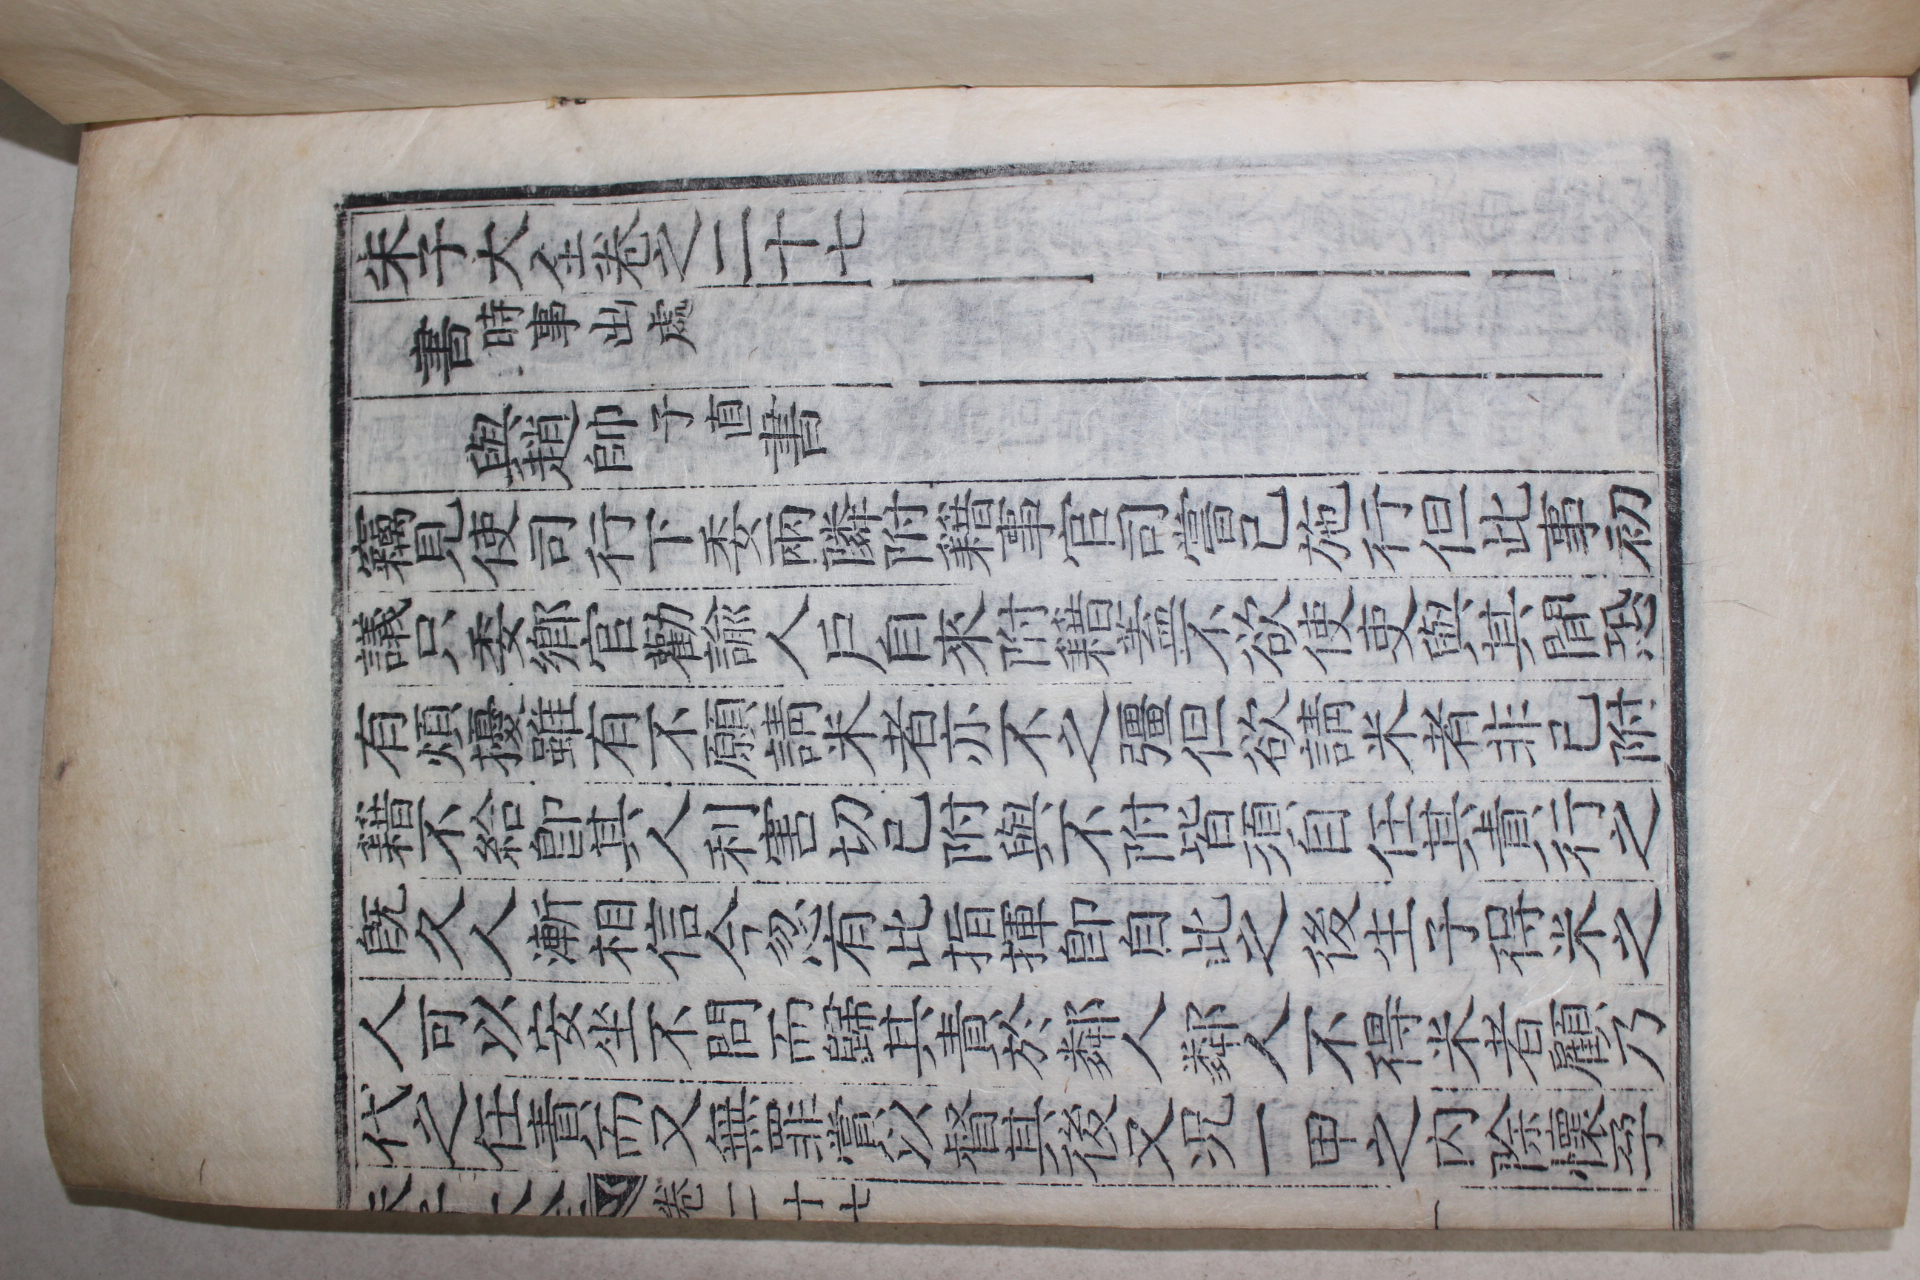 朱子大全卷之二十七
書時事出處
與趙帥子直書
竊見使司行下委兩隣附籍事官司當已施行但此事初
議只委鄉官勸諭人戶自來附籍蓋不欲使吏與其間恐
有煩擾雖有不願請米者亦不之彊但欲請米者非已附
籍不給卽其人利害切己附與不附皆須自任其責行之
旣久人漸相信今忽有此指揮卽自此之後生子得米之
人可以安坐不問而歸其責於鄰人鄰人不得米者顧乃
代之任責而又無罪賞以督其後又況一甲之內除懷孕
朱子大全 卷二十七 一